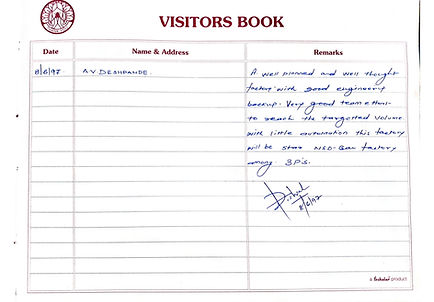 VISITORS BOOK
Date Name & Address Remarks
8/6/97 A V DESHPANDE. A well planned and well thought
factory with good engineering
backup. Very good team efforts
to reach the targetted volume.
with little automation this factory
will be star factory
among 3P's.
8/6/97
a product